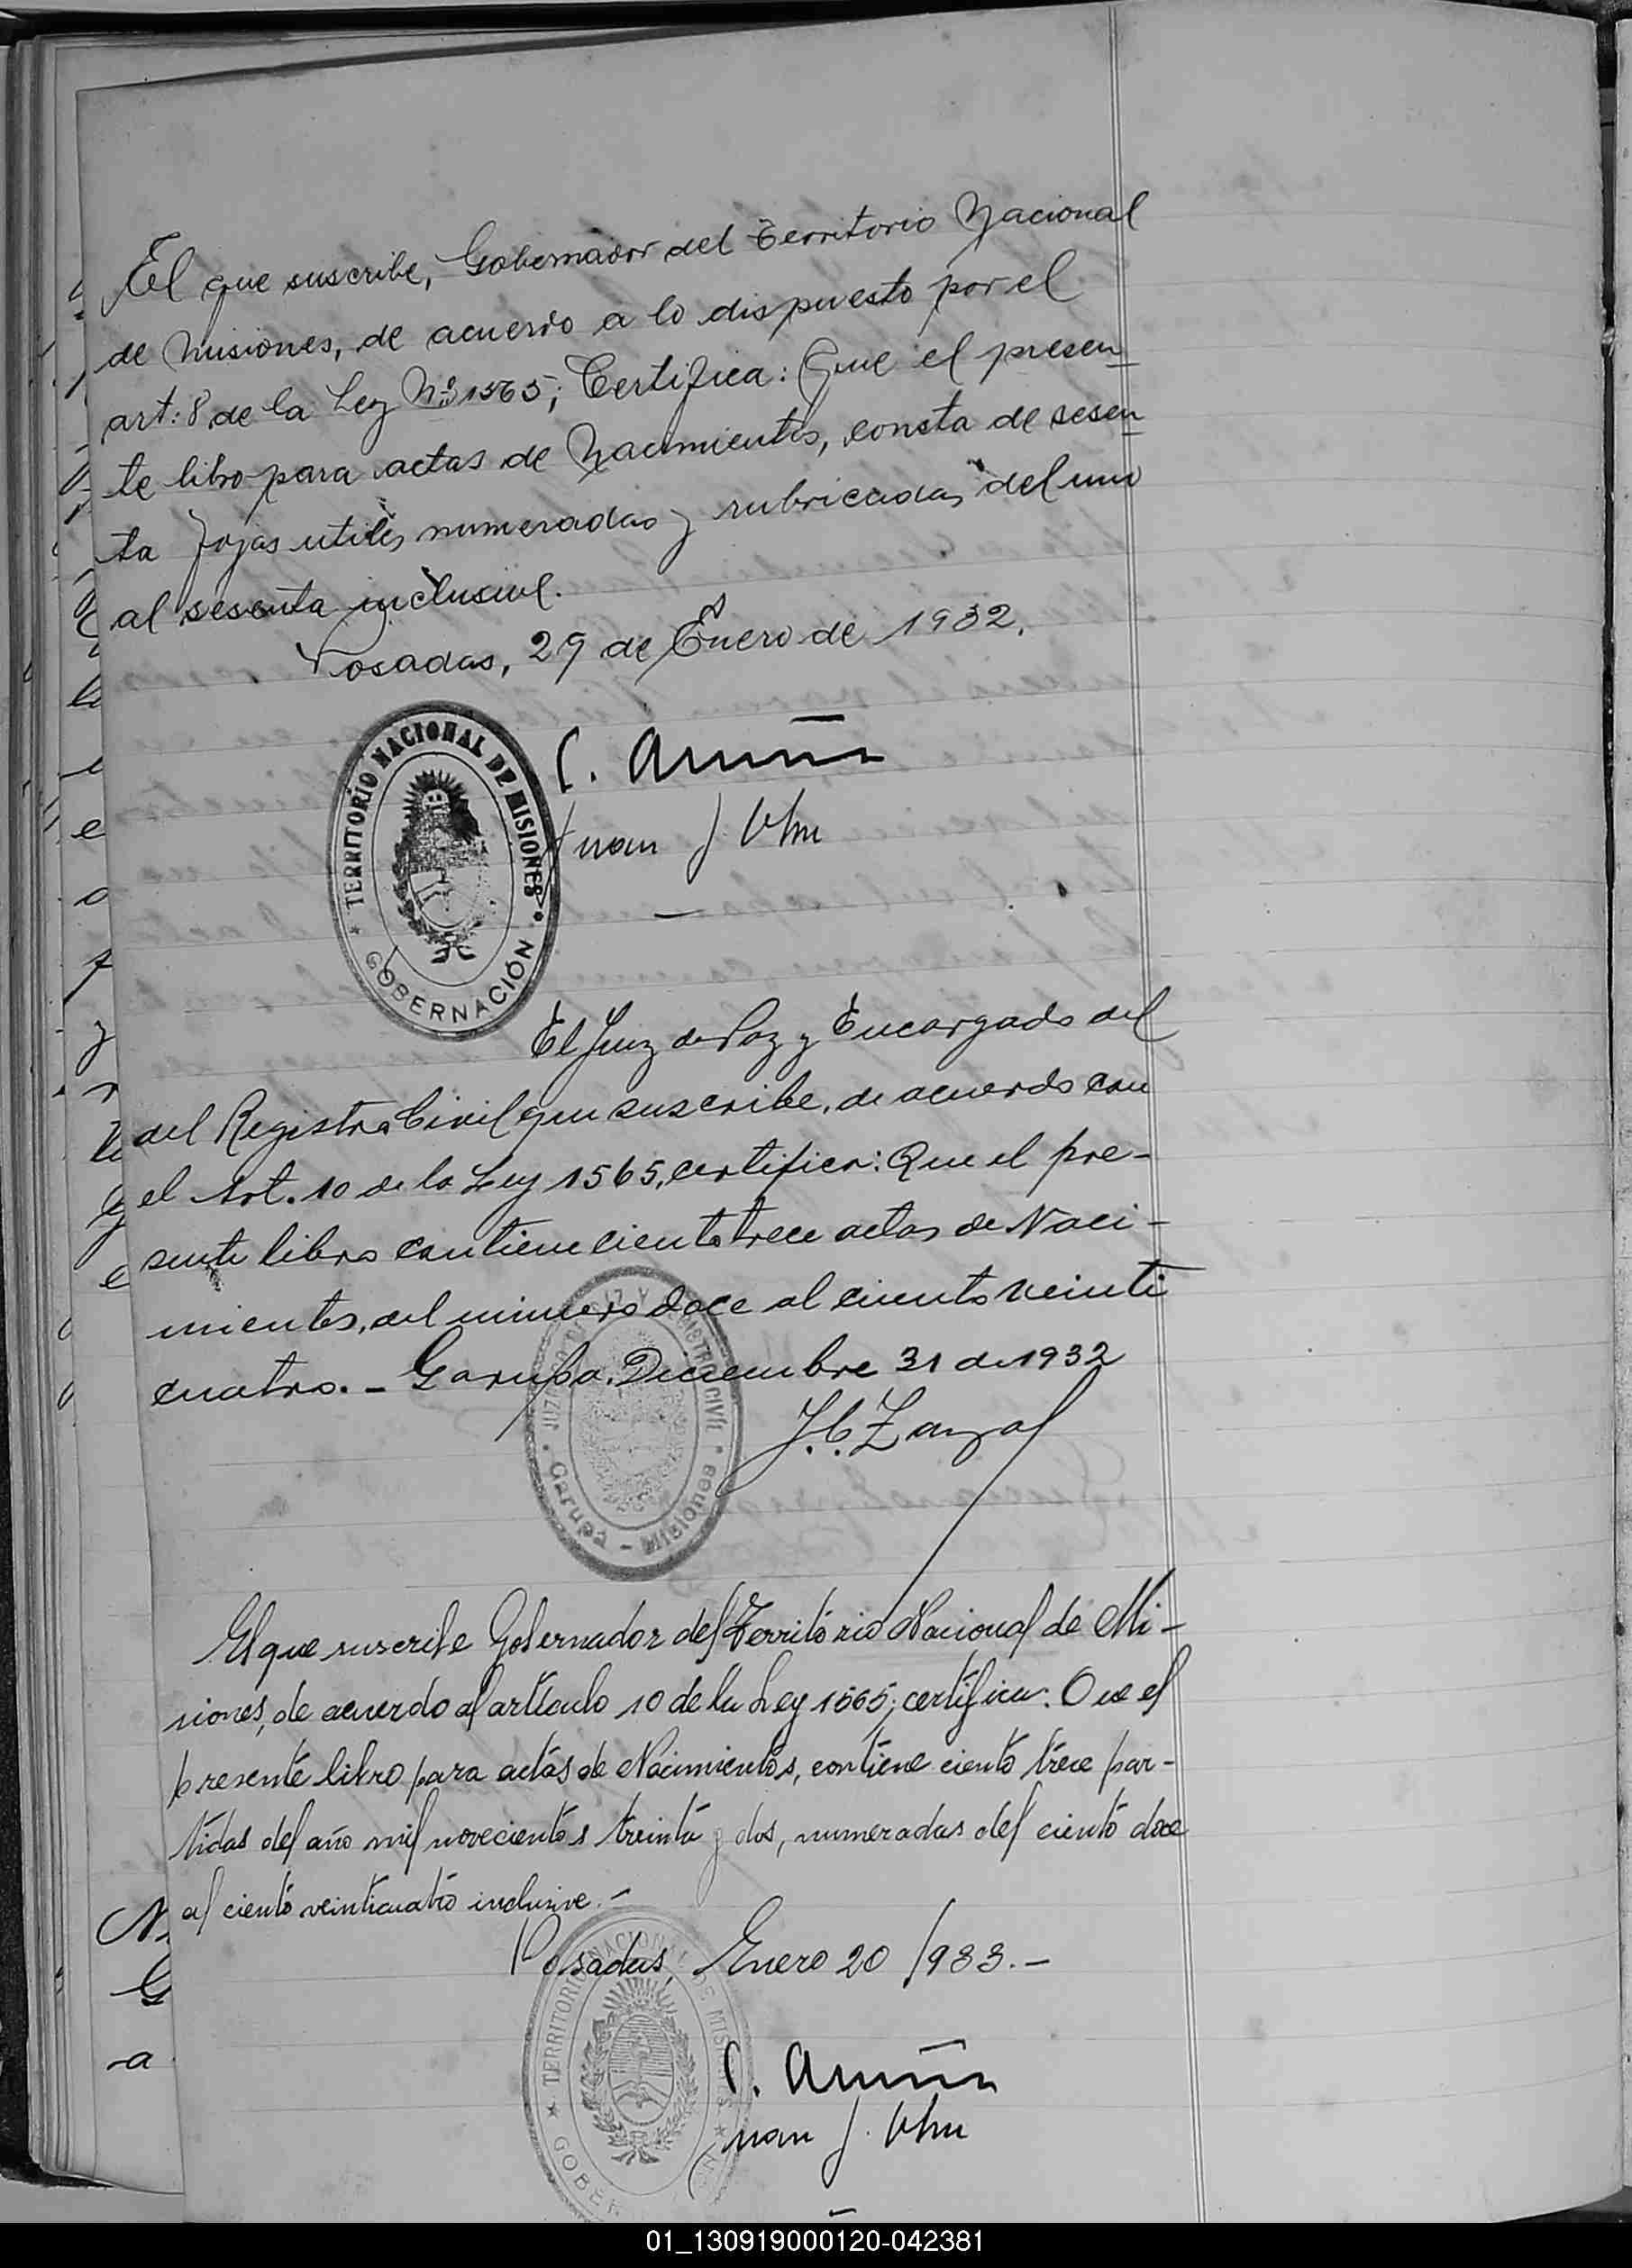 El que suscribe, Gobernador del Territorio Nacional
de Misiones, de acuerdo a lo dispuesto por el
art: 8 de la Ley Nº 1565; Certifica: Que el presen
te libro para actas de Nacimientos, consta de sesen
ta fojas utiles numeradas y rubricadas del uno
al sesenta inclusive.
Posadas, 29 de Enero de 1932.
TERRITORIO NACIONAL DE MISIONES
GOBERNACIÓN
C. Acuña
Juan J.
El Juez de Paz y Encargado del
del Registro Civil que suscribe, de acuerdo con
el Art. 10 de la Ley 1565, certifica: Que el pre-
sente libro contiene ciento trece actas de Naci-
mientos, del número doce al ciento veinti
cuatro. - Garupa, Diciembre 31 de 1932
REGISTRO CIVIL
Garupá - Misiones
El que suscribe Gobernador del Territorio Nacional de Mi-
siones, de acuerdo al artículo 10 de la Ley 1565; certifica: Que el
presente libro para actas de Nacimientos, contiene ciento trece par-
tidas del año mil novecientos treinta y dos, numeradas del ciento doce
al ciento veinticuatro inclusive. -
Posadas, Enero 20/933. -
TERRITORIO NACIONAL DE MISIONES
C. Acuña
Juan J.
01_130919000120-042381